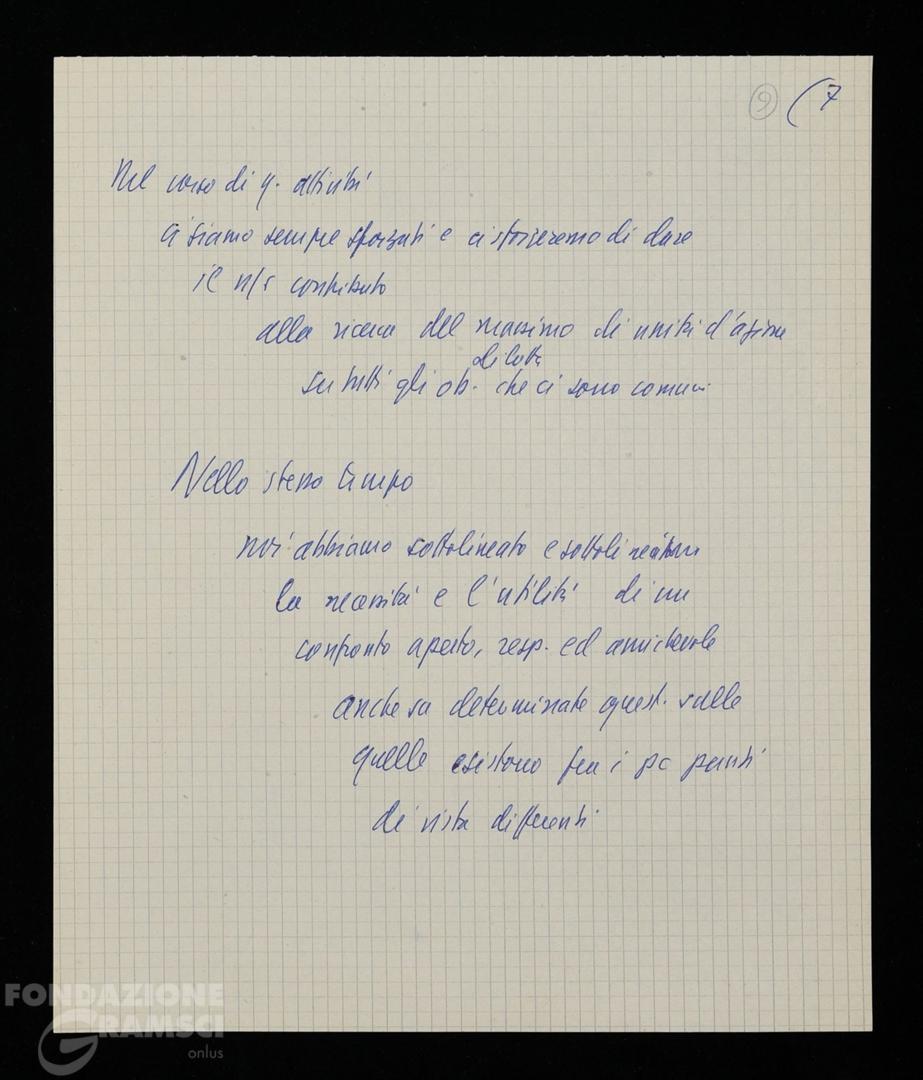 9 (7
Nel corso di q. attività
ci siamo sempre sforzati e ci sforzeremo di dare
il n/s contributo
alla ricerca del massimo di unità d'azione
di lotta
su tutti gli ob. che ci sono comuni
Nello stesso tempo
noi abbiamo sottolineato e sottolineiamo
la necessità e l'utilità di un
confronto aperto, resp. ed amichevole
anche su determinate quest. sulle
quelle esistono fra i pc punti
di vista differenti
FONDAZIONE
GRAMSCI
onlus